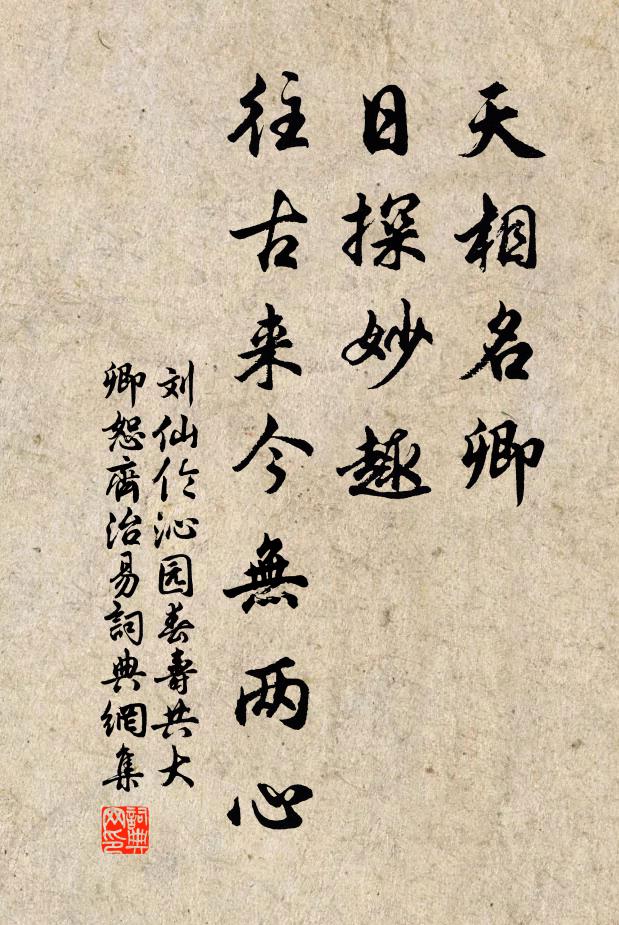 天相名卿
日探妙趣
往古来今無两心
刘仙伦沁园春寿共大
卿恕齋治易詞典網集
詞典网印